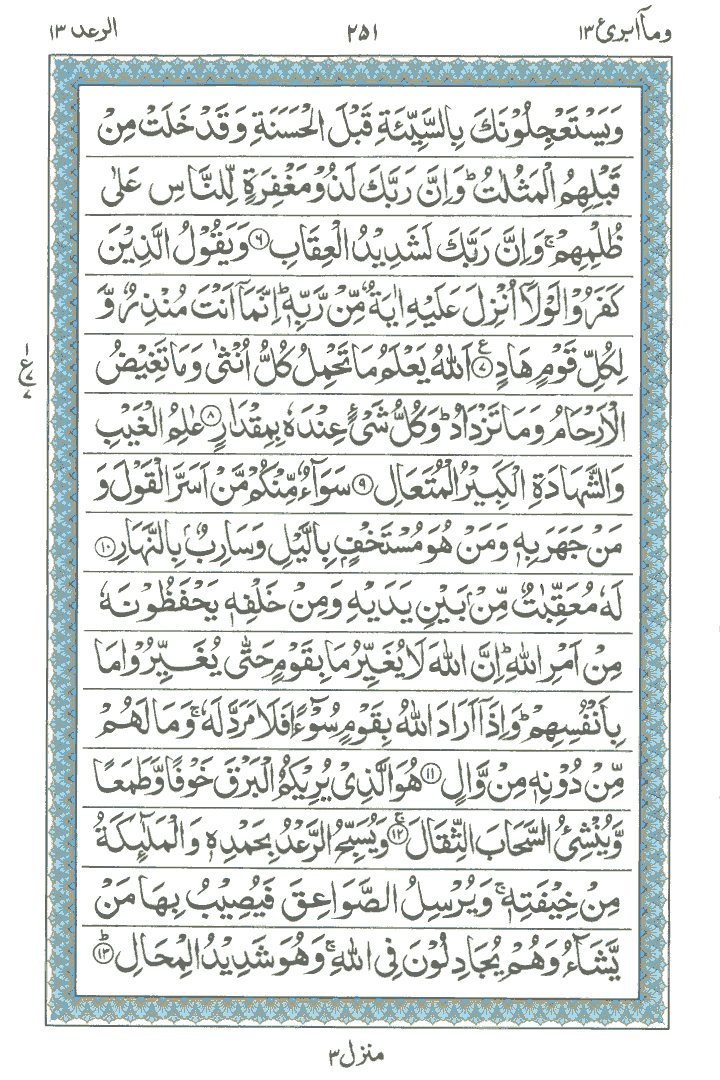 وماۤ ابرئ ١٣ ٢٥١ الرعد ١٣
وَيَسۡتَعۡجِلُوۡنَكَ بِالسَّيِّئَةِ قَبۡلَ الۡحَسَنَةِ وَقَدۡ خَلَتۡ مِنۡ
قَبۡلِهِمُ الۡمَثُلٰتُؕ وَاِنَّ رَبَّكَ لَذُوۡ مَغۡفِرَةٍ لِّلنَّاسِ عَلٰى
ظُلۡمِهِمۡۚ وَاِنَّ رَبَّكَ لَشَدِيۡدُ الۡعِقَابِ ﴿٦﴾ وَيَقُوۡلُ الَّذِيۡنَ
كَفَرُوۡا لَوۡلَاۤ اُنۡزِلَ عَلَيۡهِ اٰيَةٌ مِّنۡ رَّبِّهٖؕ اِنَّمَاۤ اَنۡتَ مُنۡذِرٌ وَّ
لِكُلِّ قَوۡمٍ هَادٍ ﴿٧﴾ ع اَللّٰهُ يَعۡلَمُ مَا تَحۡمِلُ كُلُّ اُنۡثٰى وَمَا تَغِيۡضُ
ع ١ ٧ ٧
الۡاَرۡحَامُ وَمَا تَزۡدَادُؕ وَكُلُّ شَىۡءٍ عِنۡدَهٗ بِمِقۡدَارٍ ﴿٨﴾ عٰلِمُ الۡغَيۡبِ
وَالشَّهَادَةِ الۡكَبِيۡرُ الۡمُتَعَالِ ﴿٩﴾ سَوَآءٌ مِّنۡكُمۡ مَّنۡ اَسَرَّ الۡقَوۡلَ وَ
مَنۡ جَهَرَ بِهٖ وَمَنۡ هُوَ مُسۡتَخۡفٍۭ بِالَّيۡلِ وَسَارِبٌۢ بِالنَّهَارِ ﴿١٠﴾
لَهٗ مُعَقِّبٰتٌ مِّنۡۢ بَيۡنِ يَدَيۡهِ وَمِنۡ خَلۡفِهٖ يَحۡفَظُوۡنَهٗ
مِنۡ اَمۡرِ اللّٰهِؕ اِنَّ اللّٰهَ لَا يُغَيِّرُ مَا بِقَوۡمٍ حَتّٰى يُغَيِّرُوۡا مَا
بِاَنۡفُسِهِمۡؕ وَاِذَاۤ اَرَادَ اللّٰهُ بِقَوۡمٍ سُوۡٓءًا فَلَا مَرَدَّ لَهٗۚ وَمَا لَهُمۡ
مِّنۡ دُوۡنِهٖ مِنۡ وَّالٍ ﴿١١﴾ هُوَ الَّذِىۡ يُرِيۡكُمُ الۡبَرۡقَ خَوۡفًا وَّطَمَعًا
وَّيُنۡشِئُ السَّحَابَ الثِّقَالَۚ ﴿١٢﴾ وَيُسَبِّحُ الرَّعۡدُ بِحَمۡدِهٖ وَالۡمَلٰٓئِكَةُ
مِنۡ خِيۡفَتِهٖۚ وَيُرۡسِلُ الصَّوَاعِقَ فَيُصِيۡبُ بِهَا مَنۡ
يَّشَآءُ وَهُمۡ يُجَادِلُوۡنَ فِى اللّٰهِۚ وَهُوَ شَدِيۡدُ الۡمِحَالِؕ ﴿١٣﴾
منزل ٣